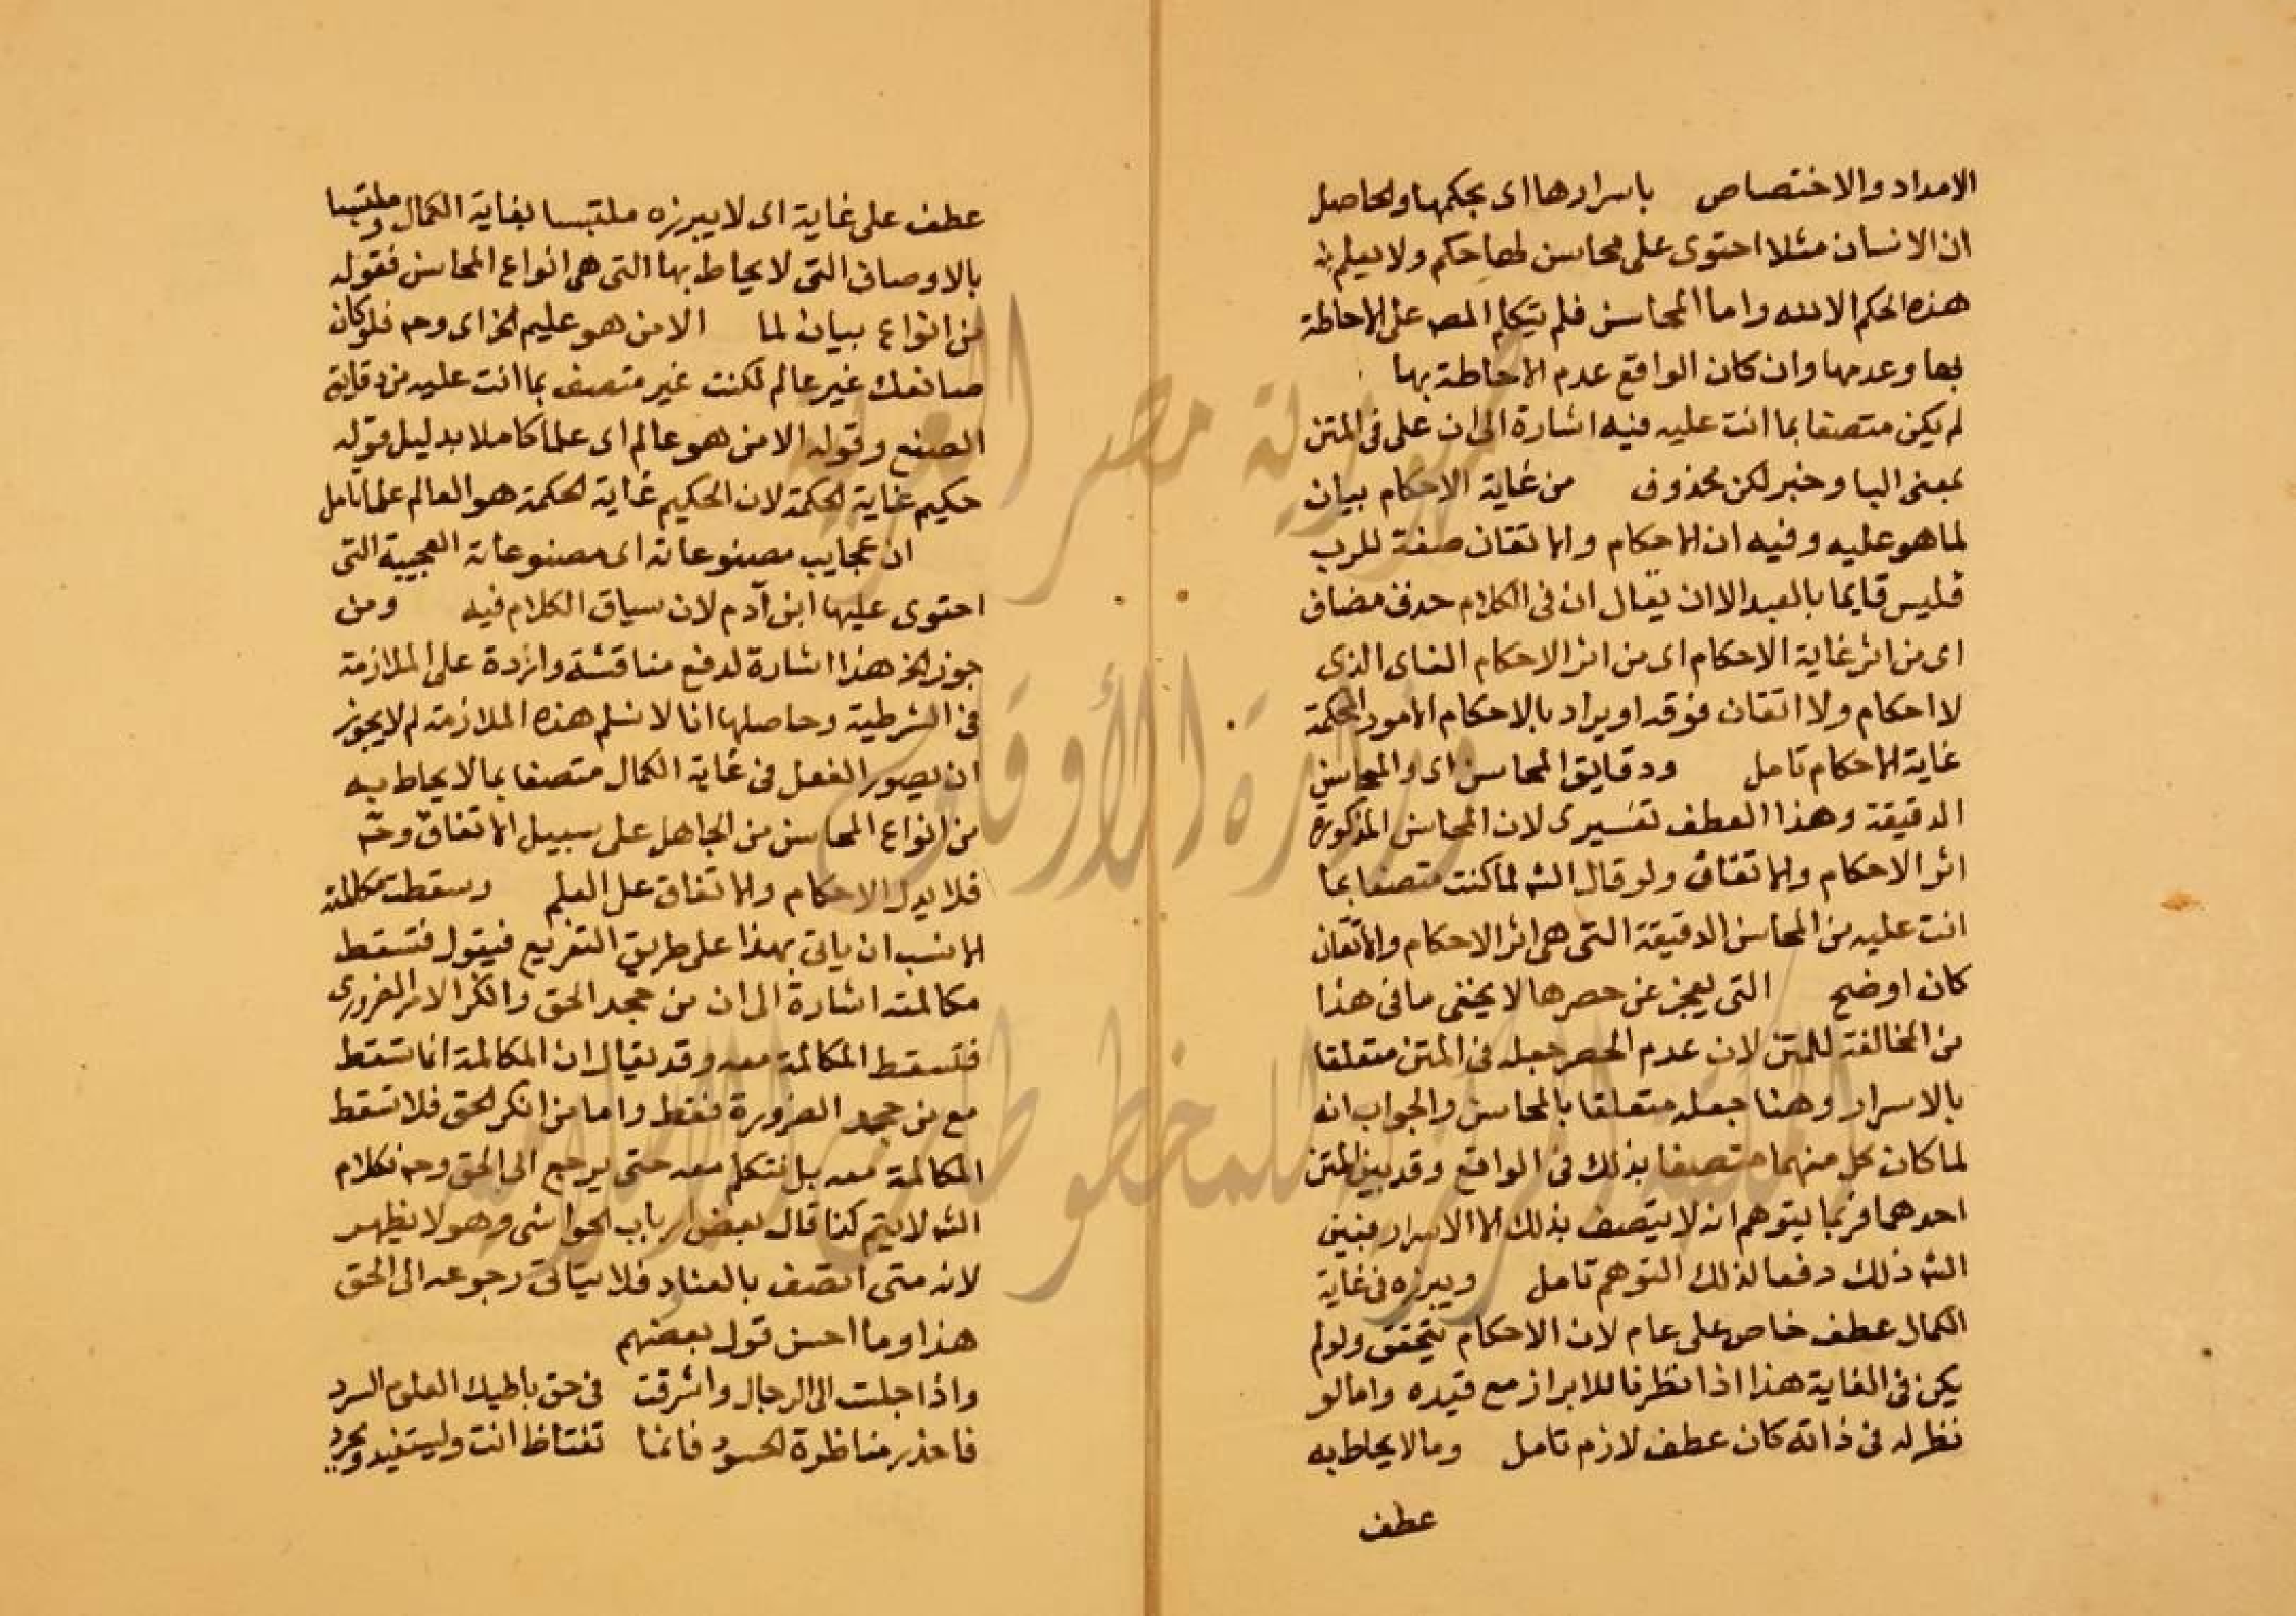 الامداد والاختصاص باسرارها اى بحكمها والحاصل
ان الانسان مثلا احتوى على محاسن لها حكم ولا يعلم
هذه الحكم الا الله واما المحاسن فلم يتكلم المص على الاحاطة
بها وعدمها وان كان الواقع عدم الاحاطة بها
لم يكن متصفا بما انت عليه فيه اشارة الى ان على فى المتن
بمعنى البا وخبر لكن محذوف من غاية الاحكام بيان
لما هو عليه وفيه ان الاحكام والاتقان صفة للرب
فليس قايما بالعبد الا ان يقال ان فى الكلام حذف مضاف
اى من اثر غاية الاحكام اى من اثر الاحكام الغاى الذى
لا احكام ولا اتقان فوقه او يراد بالاحكام الامور المحكمة
غاية الاحكام تامل ودقايق المحاسن اى والمحاسن
الدقيقة وهذا العطف تفسيرى لان المحاسن المذكورة
اثر الاحكام والاتقان ولو قال الشه لما كنت متصفا بما
انت عليه من المحاسن الدقيقة التى هى اثر الاحكام والاتقان
كان اوضح التى يعجز عن حصرها لا يخفى ما فى هذا
من المخالفة للمتن لان عدم الحصر جعله فى المتن متعلقا
بالاسرار وهنا جعله متعلقا بالمحاسن والجواب انه
لما كان كل منهما متصفا بذلك فى الواقع وقد بين المتن
احدهما فربما يتوهم انه لا يتصف بذلك الا الاسرار فبين
الشه ذلك دفعا لذلك التوهم تامل ويبرزه فى غاية
الكمال عطف خاص على عام لان الاحكام يتحقق ولو لم
يكن فى الغاية هذا اذا نظرنا للابراز مع قيده واما لو
نظر له فى ذاته كان عطف لازم تامل وما لا يحاط به
عطف
عطف على غاية اى لا يبرزه ملتبسا بغاية الكمال وملتبسا
بالاوصاف التى لا يحاط بها التى هى انواع المحاسن فقوله
من انواع بيان لما الا من هو عليم الخ اى وح فلو كان
صانعك غير عالم لكنت غير متصف بما انت عليه من دقاية
الصنع وقوله الا من هو عالم اى علما كاملا بدليل قوله
حكيم غاية الحكمة لان الحكيم غاية الحكمة هو العالم علما تامل
ان عجايب مصنوعاته اى مصنوعاته العجيبة التى
احتوى عليها ابن آدم لان سياق الكلام فيه ومن
جوز الخ هذا اشارة لدفع مناقشة واردة على الملازمة
فى الشرطية وحاصلها انا لا نسلم هذه الملازمة لم لا يجوز
ان يصور الفعل فى غاية الكمال متصفا بما لا يحاط به
من انواع المحاسن من الجاهل على سبيل الاتفاق وح
فلا يدل الاحكام والاتفاق على العلم وسقطت مكالمته
الانسب ان ياتى بهذا على طريق التفريع فيقول فتسقط
مكالمته اشارة الى ان من جحد الحق وانكر الامر الضرورى
فتسقط المكالمة معه وقد يقال ان المكالمة انما تسقط
مع من جحد الضرورة فقط واما من انكر الحق فلا تسقط
المكالمة معه بل نتكلم معه حتى يرجع الى الحق وح فكلام
الشه لا يتم كذا قال بعض ارباب الحواشى وهو لا يظهر
لانه متى اتصف بالعناد فلا يتاتى رجوعه الى الحق
هذا وما احسن قول بعضهم
واذا جلت الى الرجال واشرقت فى حق باطيك العلوم السرد
فاحذر مناظرة الحسود فانما تغتاظ انت وليستفيد ويحرد
جمهورية مصر العربية
وزارة الأوقاف
المكتبة المركزية للمخطوطات الإسلامية